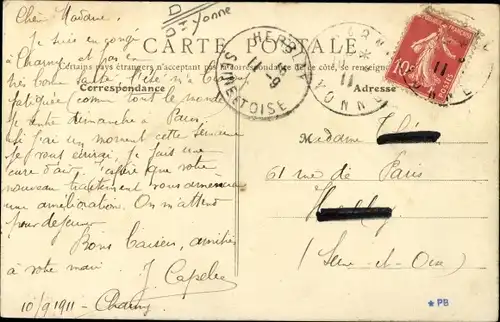 Yonne
CARTE POSTALE
Certains pays étrangers n'acceptant pas la correspondance de ce côté, se renseigner
Correspondance
Adresse
HERB
11-9
11
SEINE ET OISE
YONNE
10c
POSTES
Chère Madame,
Je suis en congé
à Charny et pas en
très bonne santé. L'été m'a
fatiguée comme tout le monde
Je rentre dimanche à Paris
si j'ai un moment cette semaine
je vous écrirai, je fais une
cure d'air, j'espère que votre
nouveau traitement vous amènera
une amélioration. On m'attend
pour déjeuner
Bons baisers, amitiés
à votre mari
J. Capelle
10/9 1911 - Charny
Madame
61 rue de Paris
(Seine-et-Oise)
*PB